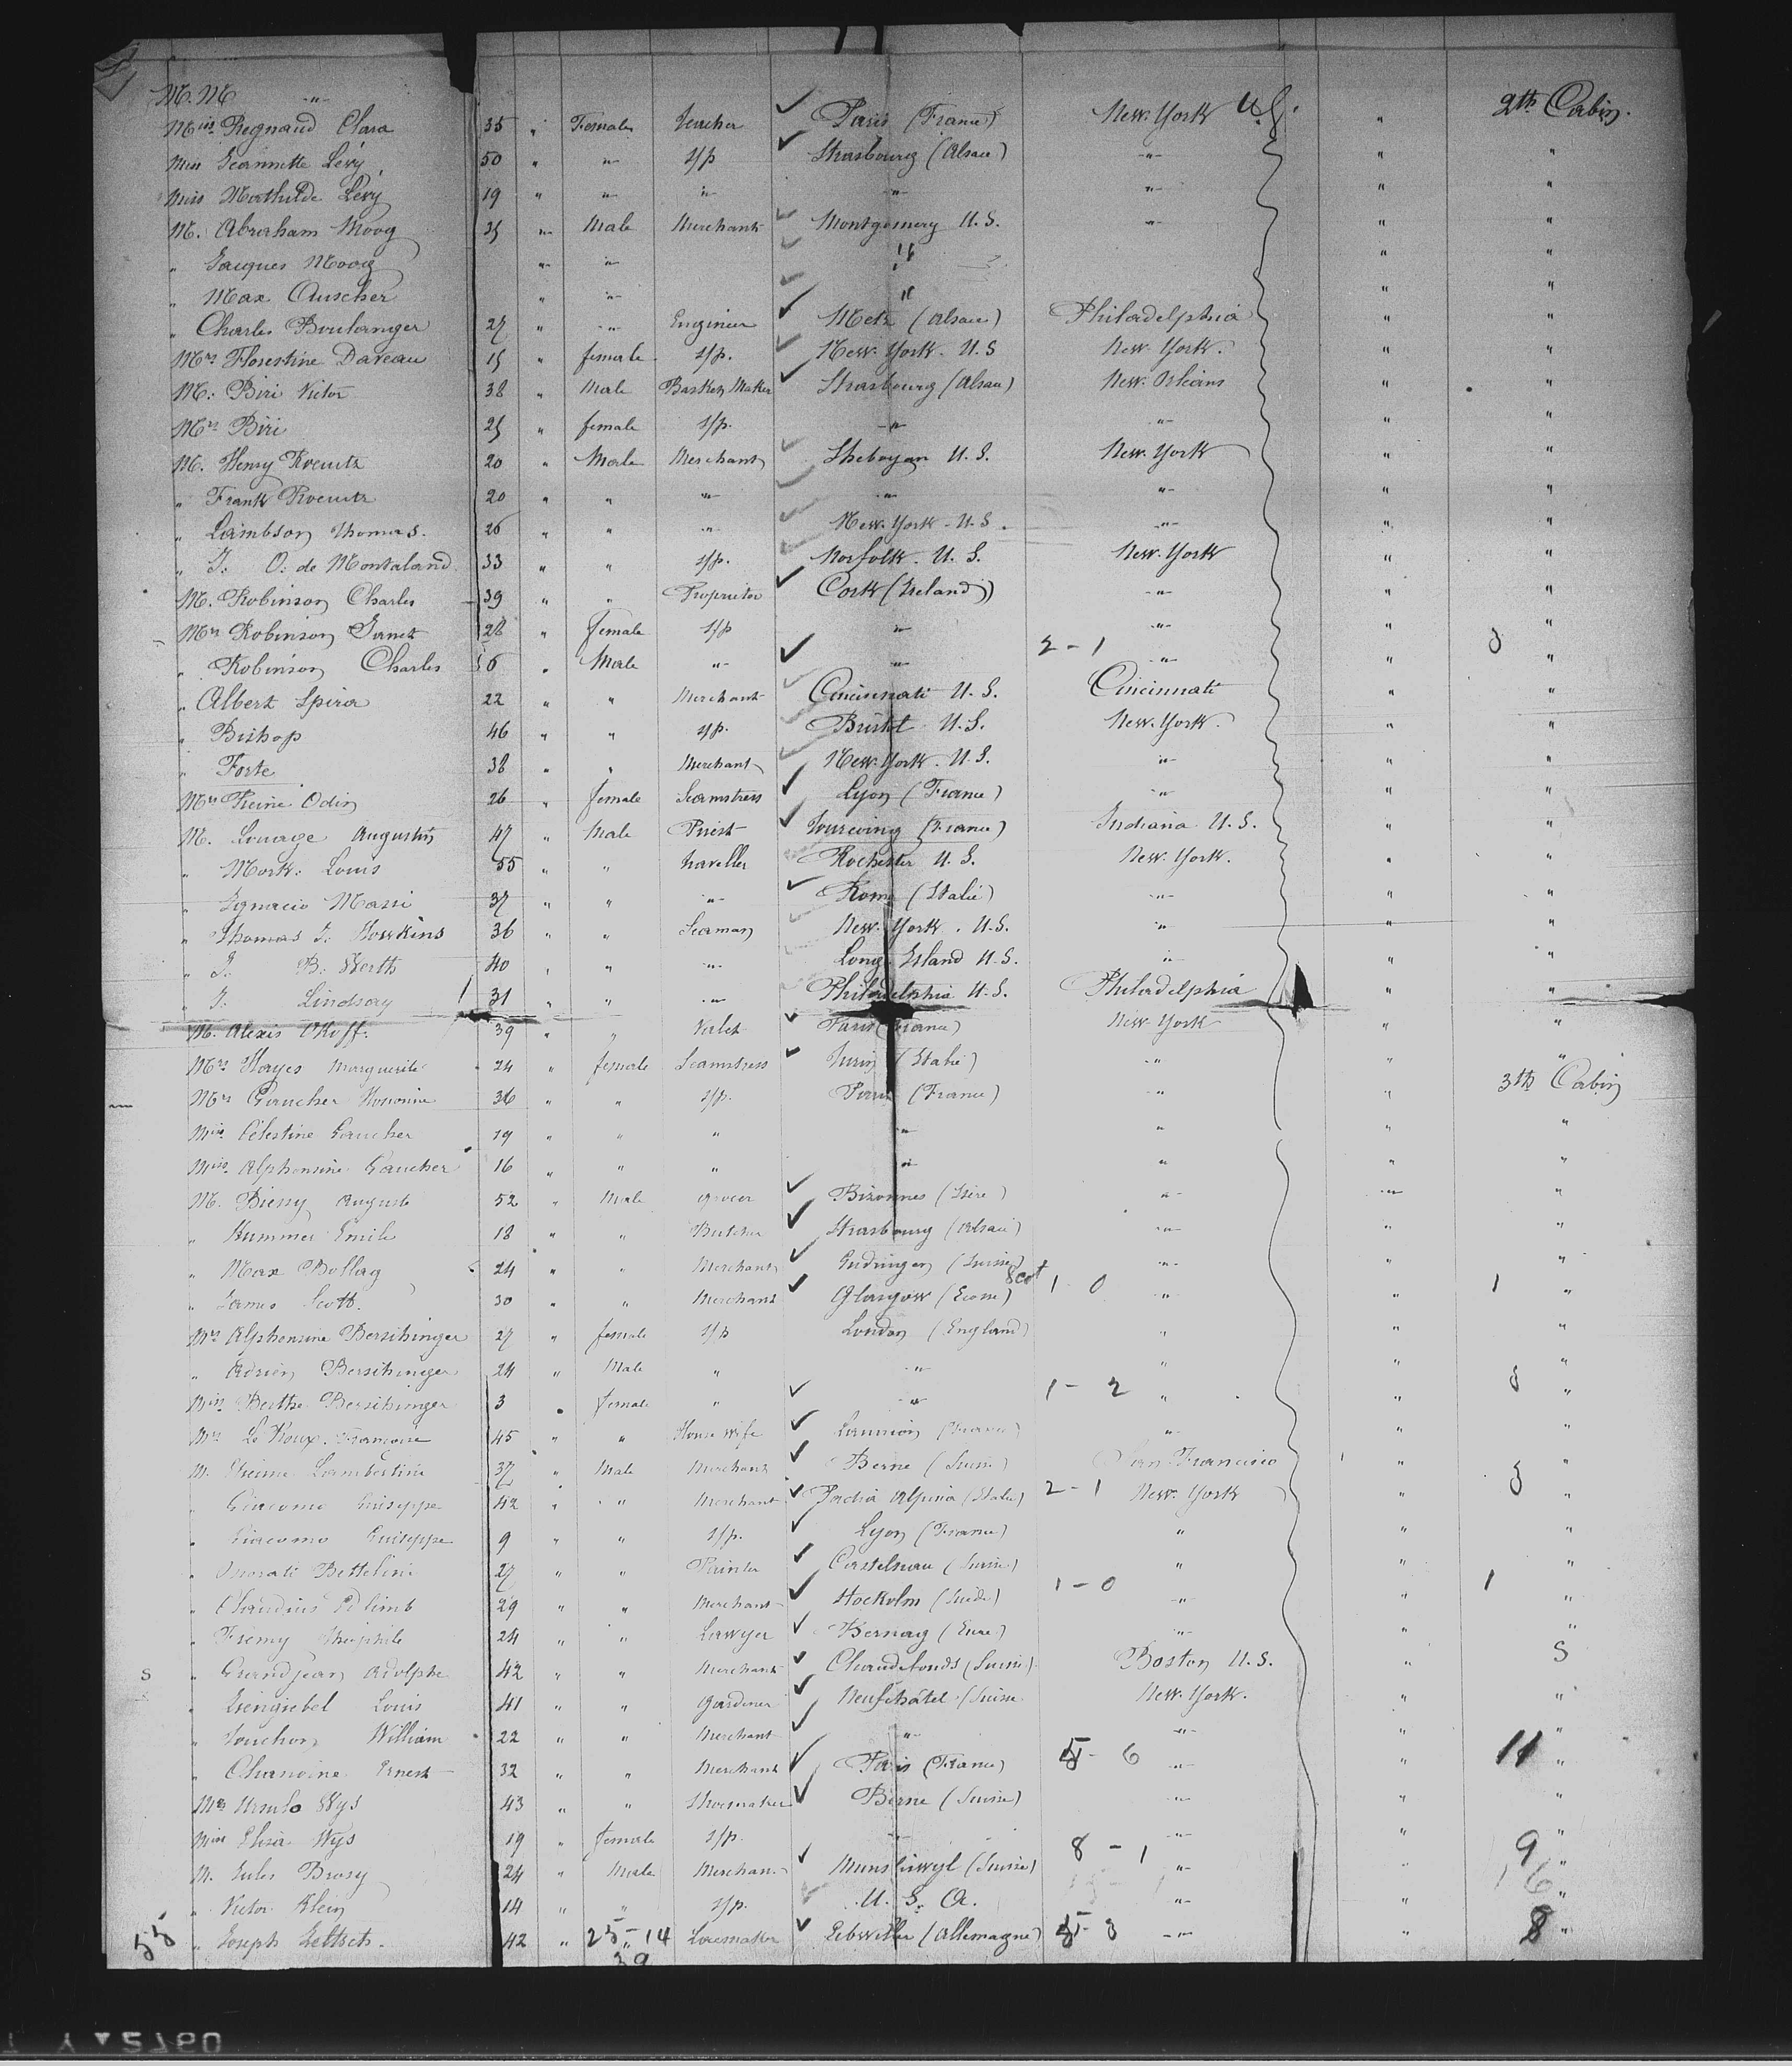 M. M " 2th Cabin.
Miss Regnaud Clara 35 " Female Teacher Paris (France) New. York U.S. "
Miss Jeannette Lévy 50 " " s/p Strasbourg (Alsace) " " "
Miss Mathilde Lévy 19 " " " " " " "
M. Abraham Moog 35 " Male Merchant Montgomery U.S. " " "
" Jacques Moog " " " " "
" Max Auscher " " " " "
" Charles Boulanger 27 " " Engineer Metz (Alsace) Philadelphia " "
Mrs Florestine Daveau 15 " female s/p. New. York. U.S New. York. " "
M. Biri Victor 38 " Male Basket Maker Strasbourg (Alsace) New. Orleans " "
Mrs Biri 25 " female s/p. " " " "
M. Henry 20 " Male Merchant Sheboygan U.S. New. York " "
" Frank 20 " " " " " " "
" Lambson Thomas. 26 " " " New. York. U.S. " " "
" J. O. de Montaland 33 " " s/p. Norfolk. U.S. New. York " "
M. Robinson Charles 39 " " Proprietor Cork (Ireland) " " "
Mrs Robinson Janet 28 " female s/p " " " "
" Robinson Charles 6 " Male " " 2 - 1 " " 3 "
" Albert Spiro 22 " " Merchant Cincinnati U.S. Cincinnati " "
" Bishop 46 " " s/p. Bristol U.S. New. York. " "
" Forte 38 " " Merchant New. York. U.S. " " "
Mrs Reine Odin 26 " female Seamstress Lyon (France) " " "
M. Louage Augustus 47 " Male Priest (France) Indiana U.S. " "
" Mork. Louis 55 " " traveller Rochester U.S. New. York. " "
" Ignacio Massi 37 " " " Rome (Italie) " " "
" Thomas J. Hawkins 36 " " Seaman New. York. U.S. " " "
" J. B. Werth 40 " " " Long. Island U.S. " " "
" J. Lindsay 31 " " " Philadelphia U.S. Philadelphia " "
M. Alexis Okoff. 39 " " Valet Paris (France) New York " "
Mrs Hayes Marguerite 24 " female Seamstress Turin (Italie) " " "
Mrs Gaucher Honorine 36 " " s/p. Paris (France) " " 3th Cabin
Miss Célestine Gaucher 19 " " " " " " "
Miss Alphonsine Gaucher 16 " " " " " " "
M. Bieny Auguste 52 " Male Grocer Bizonnes (Isère) " " "
" Hummer Emile 18 " " Butcher Strasbourg (Alsace) " " "
" Max Bollag 24 " " Merchant Endingen (Suisse) " " "
" James Scott. 30 " " Merchant Glasgow (Ecosse) Scot 1 - 0 " " 1 "
Mrs Alphonsine Bersihinger 27 " female s/p London (England) " " "
" Adrien Bersihinger 24 " Male " " " " "
Miss Berthe Bersihinger 3 " female " " 1 - 2 " " 3 "
Mrs Le Roux. Françoise 45 " " House wife Lannion (France) " " "
M. Etienne Lambertini 37 " Male Merchant Berne (Suisse) San Francisco " "
" Giacomo Guiseppe 42 " " Merchant (Italie) 2 - 1 New. York " 3 "
" Giacomo Guiseppe 9 " " s/p. Lyon (France) " " "
" Bettelini 27 " " Painter Castelnau (Suisse) " " "
" Claudius Edlimb 29 " " Merchant Stockolm (Suède) 1 - 0 " " 1 "
" Fremy Théophile 24 " " Lawyer Bernay (Eure) " " "
S " Grandjean Adolphe 42 " " Merchant Chaudefonds (Suisse) Boston U.S. " S
" Louis 41 " " Gardener Neufchâtel (Suisse New. York. " "
" Touchon William 22 " " Merchant " " " "
" Chanoine Ernest 32 " " Merchant Paris (France) 5 - 6 " " 11 "
Mrs Ursulo Wys 43 " " Shoemaker Berne (Suisse) " " "
Miss Elisa Wys 19 " female s/p. " " " "
M. Jules Brosy 24 " Male Merchant (Suisse) 8 - 1 " " 9 "
" Victor Klein 14 " " s/p. U. S. A. " " 16 "
55 " Joseph 42 " 25 - 14 (Allemagne) 5 - 3 " " 8 "
39